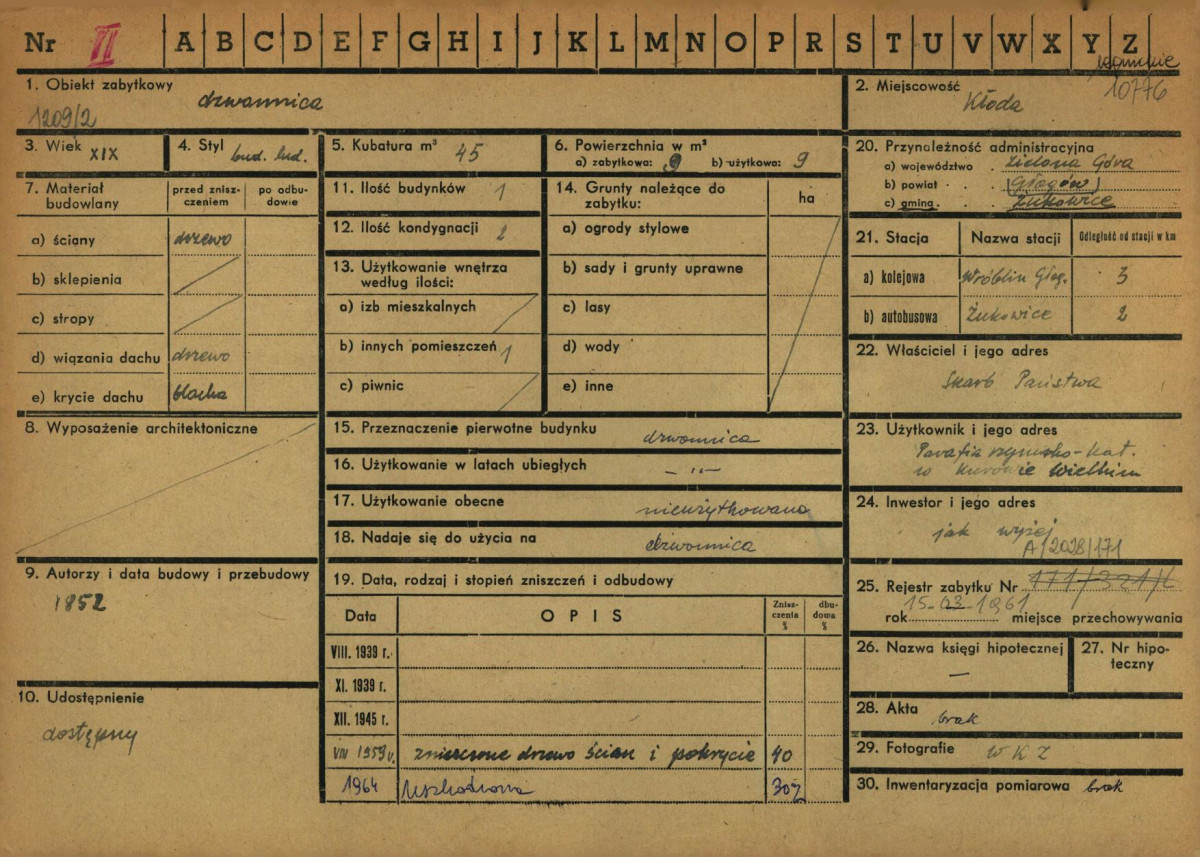 Nr II A B C D E F G H I J K L M N O P R S T U V W X Y Z
1. Obiekt zabytkowy
dzwonnica
1209/2
2. Miejscowość
10776
Kłoda
3. Wiek XIX
4. Styl bud. lud.
5. Kubatura m³ 45
6. Powierzchnia w m²
a) zabytkowa: 9 b) użytkowa: 9
20. Przynależność administracyjna
a) województwo Zielona Góra
b) powiat (Głogów)
c) gmina Żukowice
7. Materiał budowlany
przed zniszczeniem
po odbudowie
a) ściany drzewo
b) sklepienia
c) stropy
d) wiązania dachu drzewo
e) krycie dachu blacha
11. Ilość budynków 1
12. Ilość kondygnacji 2
13. Użytkowanie wnętrza
według ilości:
a) izb mieszkalnych
b) innych pomieszczeń 1
c) piwnic
14. Grunty należące do
zabytku:
ha
a) ogrody stylowe
b) sady i grunty uprawne
c) lasy
d) wody
e) inne
21. Stacja Nazwa stacji Odległość od stacji w km
a) kolejowa Wróblin Głog. 3
b) autobusowa Żukowice 2
22. Właściciel i jego adres
Skarb Państwa
8. Wyposażenie architektoniczne
15. Przeznaczenie pierwotne budynku dzwonnica
16. Użytkowanie w latach ubiegłych – „ –
17. Użytkowanie obecne nieużytkowana
18. Nadaje się do użycia na dzwonnica
23. Użytkownik i jego adres
Parafia rzymsko-kat.
w Kurowie Wielkim
24. Inwestor i jego adres
jak wyżej
A/2028/171
9. Autorzy i data budowy i przebudowy
1852
19. Data, rodzaj i stopień zniszczeń i odbudowy
Data OPIS Zniszczenia % dbudowa %
VIII. 1939 r.
XI. 1939 r.
XII. 1945 r.
VIII 1959 r. zniszczone drzewo ścian i pokrycie 40
1964 uszkodzona 30%
25. Rejestr zabytku Nr
15-03-1961
rok miejsce przechowywania
26. Nazwa księgi hipotecznej
–
27. Nr hipoteczny
10. Udostępnienie
dostępny
28. Akta brak
29. Fotografie WKZ
30. Inwentaryzacja pomiarowa brak